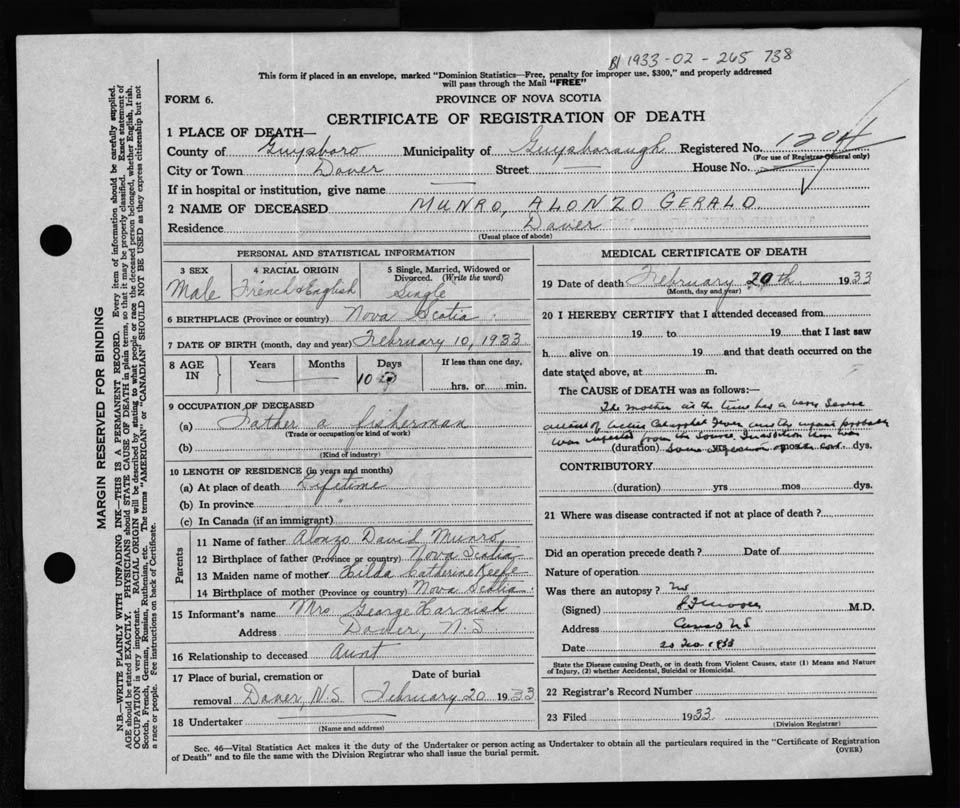 1933-02-265 738
This form if placed in an envelope, marked "Dominion Statistics—Free, penalty for improper use, $300," and properly addressed
will pass through the Mail "FREE"
FORM 6.
PROVINCE OF NOVA SCOTIA
CERTIFICATE OF REGISTRATION OF DEATH
1 PLACE OF DEATH—
County of Guysboro Municipality of Guysborough Registered No. 1204
(For use of Registrar General only)
City or Town Dover Street — House No.
If in hospital or institution, give name —
2 NAME OF DECEASED MUNRO, ALONZO GERALD
Residence Dover
(Usual place of abode)
PERSONAL AND STATISTICAL INFORMATION
3 SEX Male
4 RACIAL ORIGIN French & English
5 Single, Married, Widowed or Divorced. (Write the word) Single
6 BIRTHPLACE (Province or country) Nova Scotia
7 DATE OF BIRTH (month, day and year) February 10, 1933
8 AGE IN Years Months Days If less than one day,
— 10 hrs. or min.
9 OCCUPATION OF DECEASED
(a) Father a fisherman
(Trade or occupation or kind of work)
(b)
(Kind of industry)
10 LENGTH OF RESIDENCE (in years and months)
(a) At place of death Lifetime
(b) In province "
(c) In Canada (if an immigrant)
Parents
11 Name of father Alonzo David Munro
12 Birthplace of father (Province or country) Nova Scotia
13 Maiden name of mother Hilda Catherine Keefe
14 Birthplace of mother (Province or country) Nova Scotia
15 Informant's name Mrs George Harnish
Address Dover, N.S
16 Relationship to deceased Aunt
17 Place of burial, cremation or Date of burial
removal Dover, N.S February 20 1933
18 Undertaker
(Name and address)
MEDICAL CERTIFICATE OF DEATH
19 Date of death February 20th 1933
(Month, day and year)
20 I HEREBY CERTIFY that I attended deceased from
19 to 19 that I last saw
h alive on 19 and that death occurred on the
date stated above, at m.
The CAUSE of DEATH was as follows:—
The mother at the time had a very severe
attack of
was from the
(duration) yrs mos dys.
CONTRIBUTORY
(duration) yrs mos dys.
21 Where was disease contracted if not at place of death?
Did an operation precede death? Date of
Nature of operation
Was there an autopsy? No
(Signed) M.D.
Address Canso NS
Date 20 Feb 1933
State the Disease causing Death, or in death from Violent Causes, state (1) Means and Nature
of Injury, (2) whether Accidental, Suicidal or Homicidal.
22 Registrar's Record Number
23 Filed 1933
(Division Registrar)
Sec. 46—Vital Statistics Act makes it the duty of the Undertaker or person acting as Undertaker to obtain all the particulars required in the "Certificate of Registration
of Death" and to file the same with the Division Registrar who shall issue the burial permit. (OVER)
MARGIN RESERVED FOR BINDING
N.B.—WRITE PLAINLY WITH UNFADING INK—THIS IS A PERMANENT RECORD. Every item of information should be carefully supplied.
AGE should be stated EXACTLY. PHYSICIANS should STATE CAUSE OF DEATH in plain terms, so that it may be properly classified. Exact statement of
OCCUPATION is very important. RACIAL ORIGIN will be described by stating to what people or race the deceased person belonged, whether English, Irish,
Scotch, French, German, Russian, Ruthenian, etc. The terms "AMERICAN" or "CANADIAN" SHOULD NOT BE USED as they express citizenship but not
a race or people. See instructions on back of Certificate.